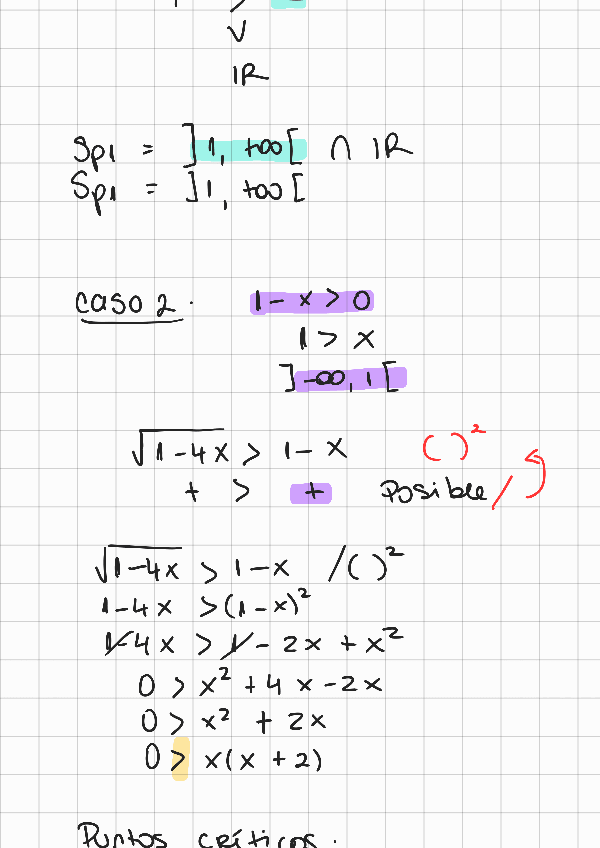 V
IR
Sp1 = ]1, +∞[ ∩ IR
Sp1 = ]1, +∞[
Caso 2.
1 - x > 0
1 > x
]-∞, 1[
√1-4x > 1-x ( )²
+ > + Posible/
√1-4x > 1-x /( )²
1-4x > (1-x)²
1-4x > 1-2x + x²
0 > x² + 4x - 2x
0 > x² + 2x
0 > x(x + 2)
Puntos críticos.